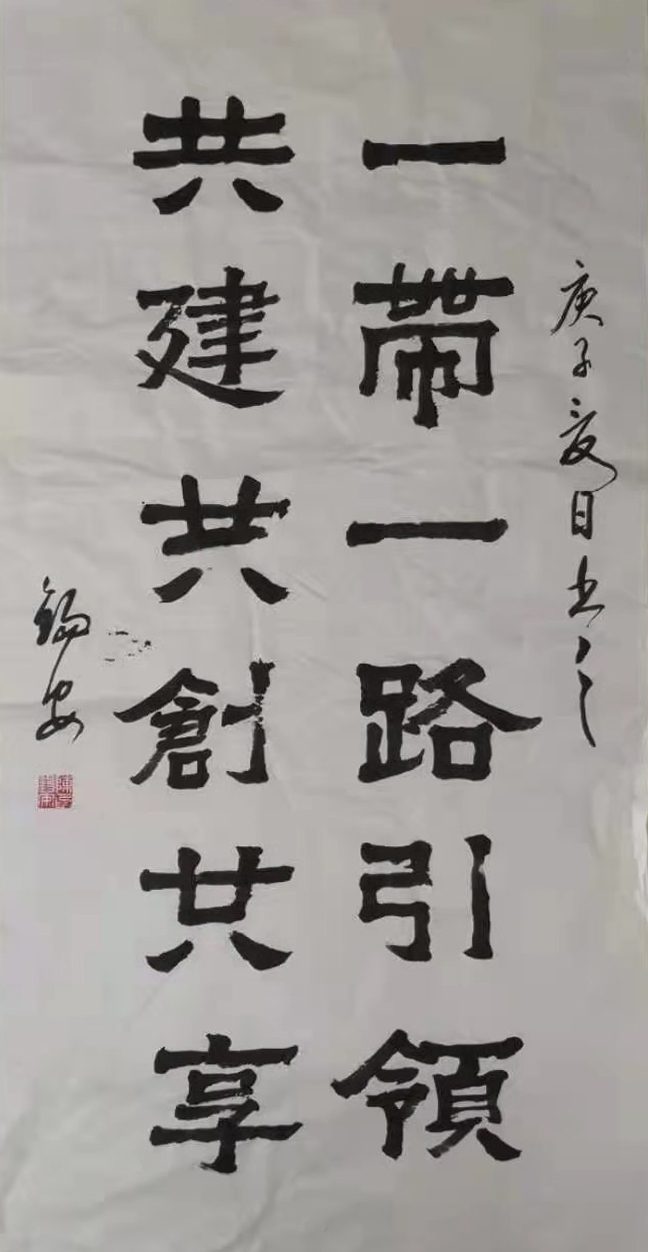 庚子夏日书之
一帶一路引領
共建共創共享
錫安